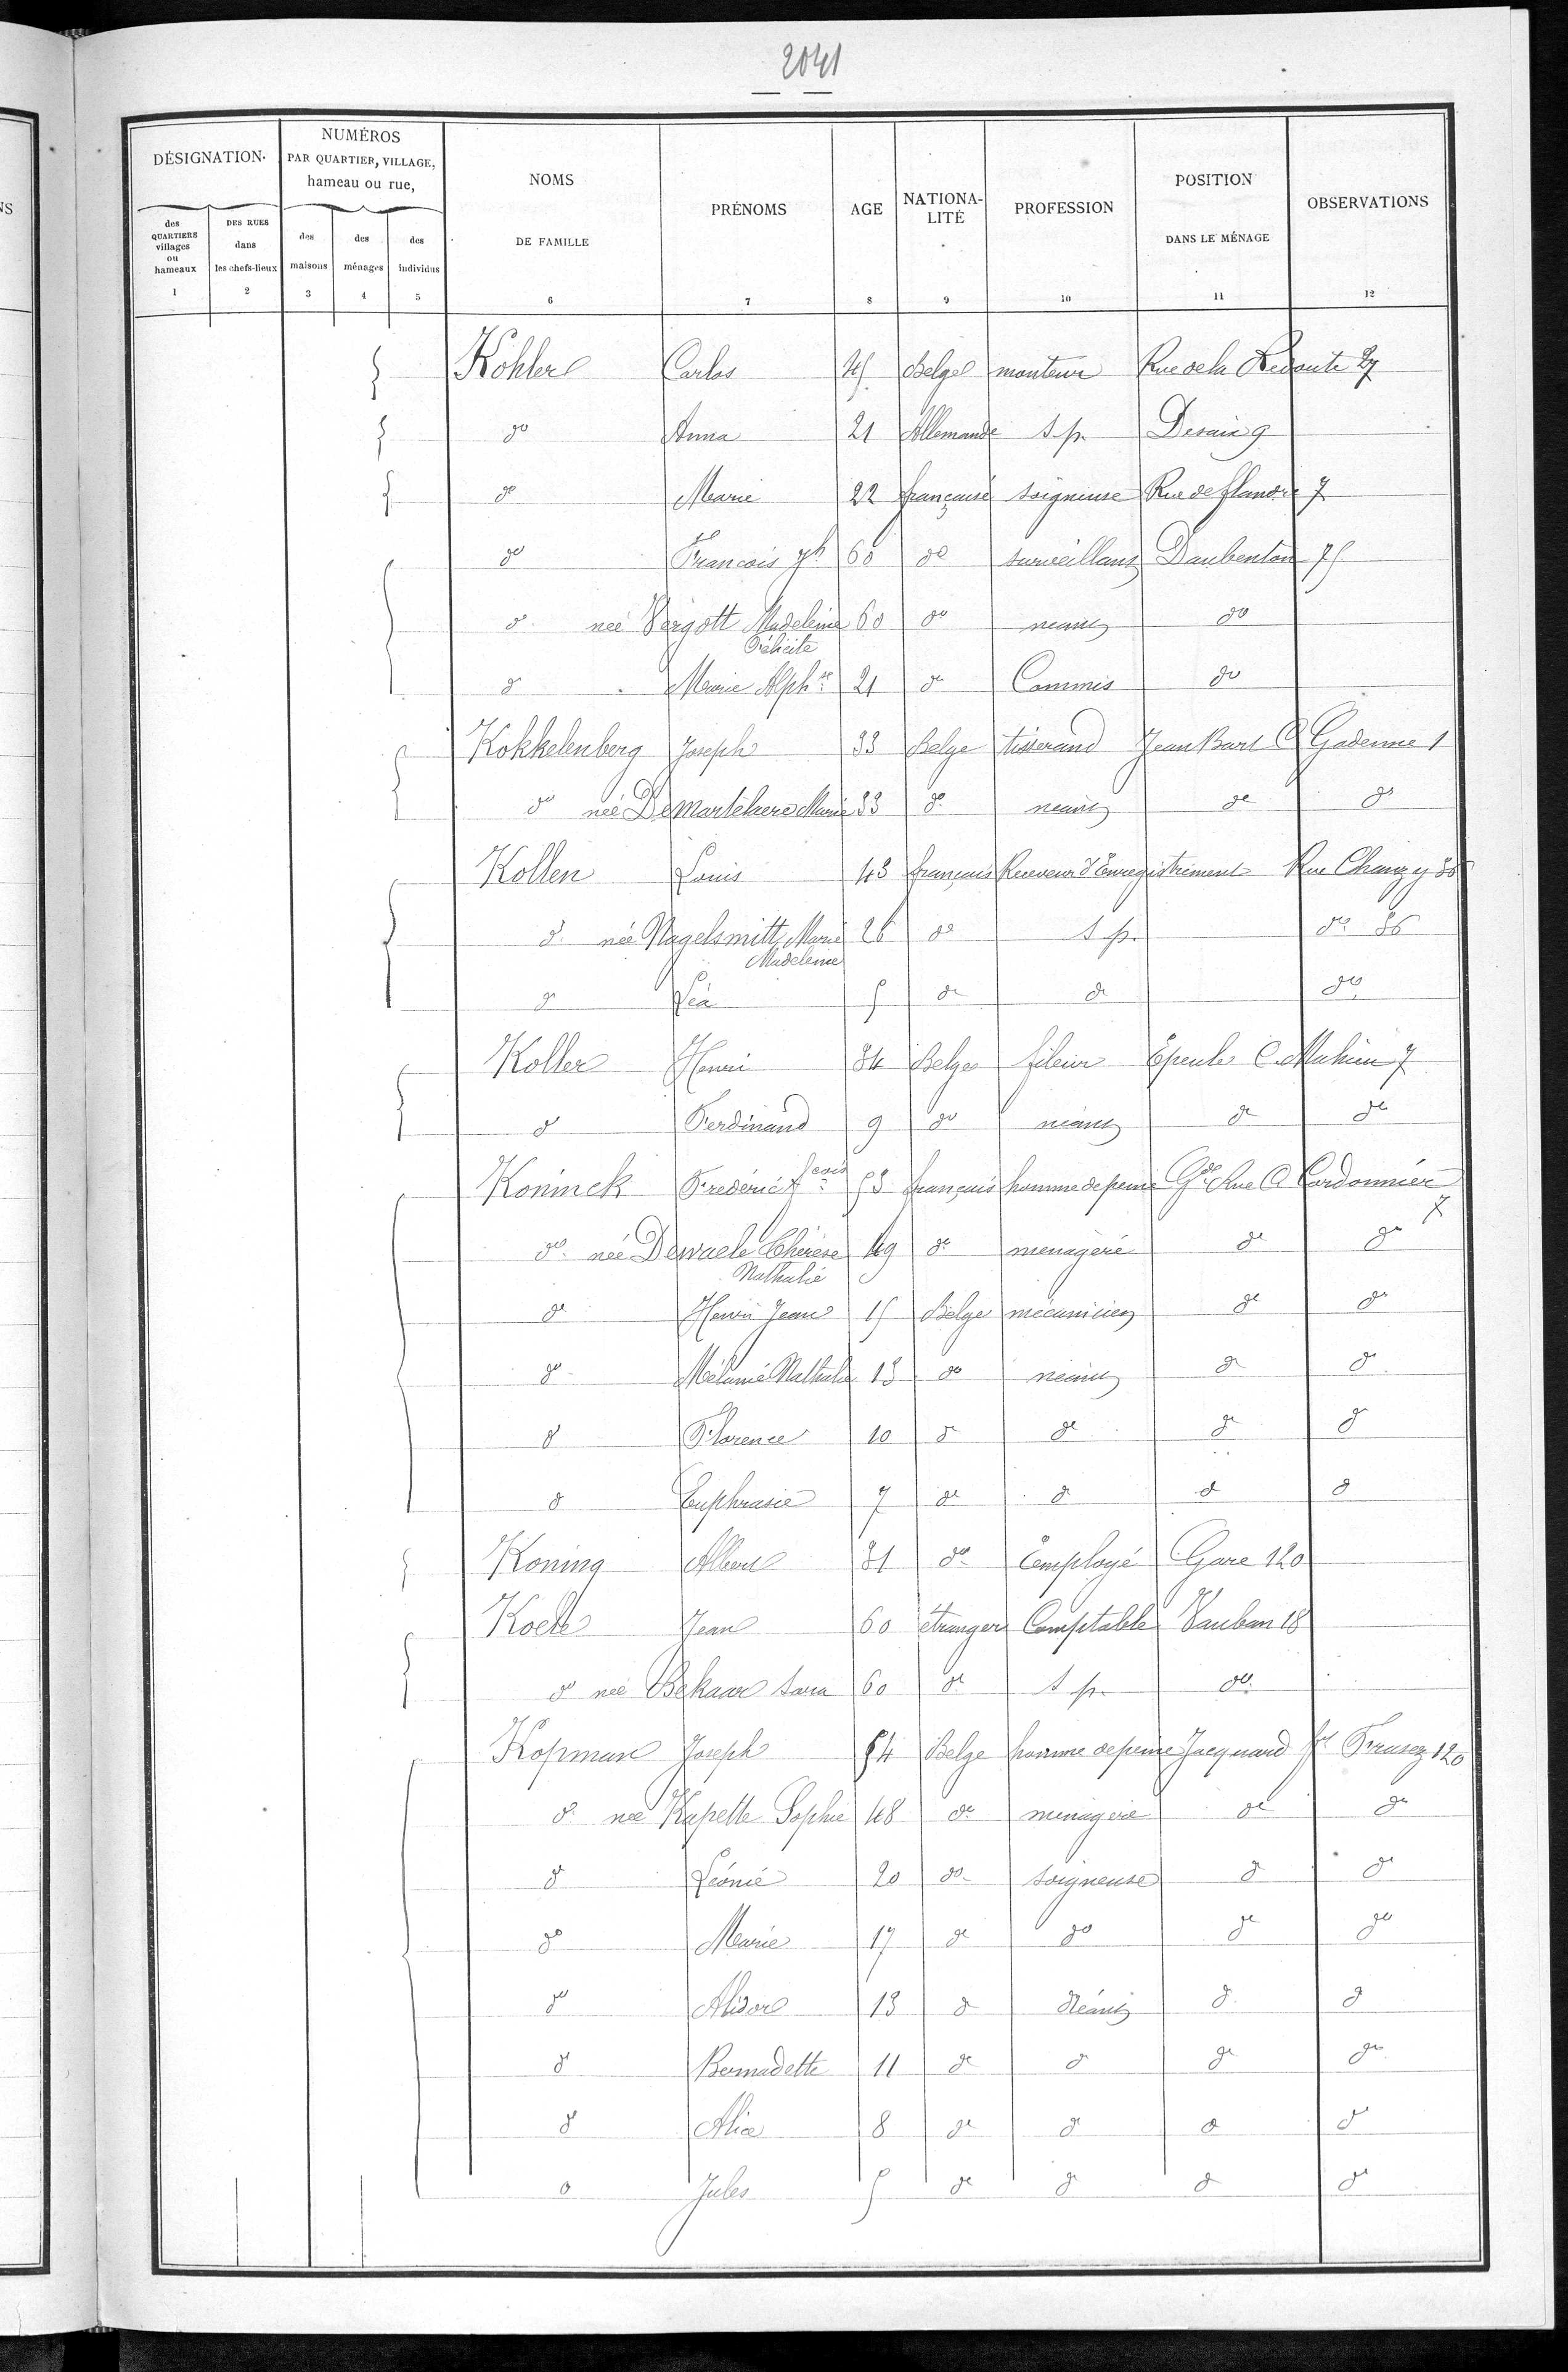 2041
DÉSIGNATION
NUMÉROS
PAR QUARTIER, VILLAGE,
hameau ou rue,
des QUARTIERS villages ou hameaux
DES RUES dans les chefs-lieux
des maisons
des ménages
des individus
NOMS DE FAMILLE
PRÉNOMS
AGE
NATIONA-LITÉ
PROFESSION
POSITION DANS LE MÉNAGE
OBSERVATIONS
1 2 3 4 5 6 7 8 9 10 11 12
Kohler Carlos 45 Belge monteur Rue de la Redoute 27
do Anna 21 Allemande s.p. Desaix 9
do Marie 22 française soigneuse Rue de flandre 7
do Francois Jh 60 do surveillant Daubenton 75
do née Vergott Madeleine 60 do neant do
Félicite
do Marie Alphse 21 do Commis do
Kokkelenberg Joseph 33 Belge tisserand Jean Bart C Gadenne 1
do née Demartelaere Marie 33 do neant do do
Kollen Louis 43 français Receveur d'Enregistrement Rue Chanzy 86
do née Nagelsmitt Marie 26 do s.p. do 86
Madeleine
do Léa 5 do do do
Koller Henri 34 Belge fileur Epeule C. Mahieu 7
do Ferdinand 9 do néant do do
Koninck Frédéric fcois 53 français homme de peine Gde Rue C Cordonnier
7
do née Dewaele Thérèse 49 do menagère do do
Nathalie
do Henri Jean 15 Belge mécanicien do do
do Mélanie Nathalie 13 do néant do do
do Florence 10 do do do do
do Euphrasie 7 do do do do
Koning Albert 31 do Employé Gare 120
Koele Jean 60 étranger Comptable Vauban 18
do née Bekaar Sara 60 do s.p. do
Kopman Joseph 54 Belge homme de peine Jacquard ft Frasez 120
do née Kapette Sophie 48 do menagère do do
do Léonie 20 do soigneuse do do
do Marie 17 do do do do
do Alidor 13 do Néant do do
do Bernadette 11 do do do do
do Alice 8 do do do do
do Jules 5 do do do do